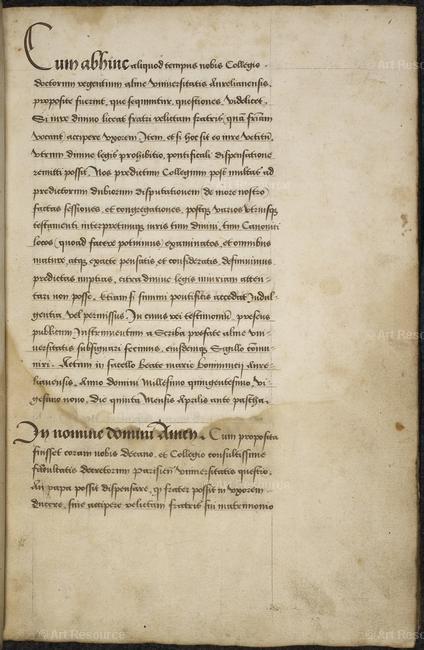 Cum abhinc aliquod tempus nobis Collegio
doctorum regentium alme Universitatis Aurelianensis.
proposite fuerint, que sequuntur, questiones. Videlicet.
Si iure divino liceat fratri relictam fratris, quã friam
vocant accipere uxorem. Item, et si hoc sit eo iure vetitũ,
utrum divine legis prohibitio, pontificali dispensatione
remitti possit. Nos predictum Collegium post multas ad
predictorum dubiorum disputationem de more nostro
factas sessiones, et congregationes, postq̃ varios utriusq̃
testamenti interpretumq̃ iuris tum divini, tum Canonici
locos (quoad facere potuimus) examinatos, et omnibus
mature, atq̃ exacte pensatis, et consideratis, definivimus
predictas nuptias, citra divine legis iniuriam atten-
tari non posse. Etiam si summi pontificis accedat Indul-
gentia, vel permissus. In cuius rei testimoniũ, presens
publicum Instrumentum a Scriba prefate alme Uni-
versitatis subsignari fecimus, eiusdemq̃ Sigillo cõmu-
niri. Actum in sacello beate marie boninuncii Aure-
lianensis, Anno domini Millesimo quingentesimo, vi-
gesimo nono, die quinta Mensis Aprilis ante pascha.
In nomine domini Amen. Cum proposita
fuisset coram nobis decano, et Collegio consultissime
facultatis decretorum Parisieñ Universitatis questio.
An papa possit dispensare, q̃ frater possit in uxorem
ducere, sive accipere relictam fratris sui matrimonio
© Art Resource